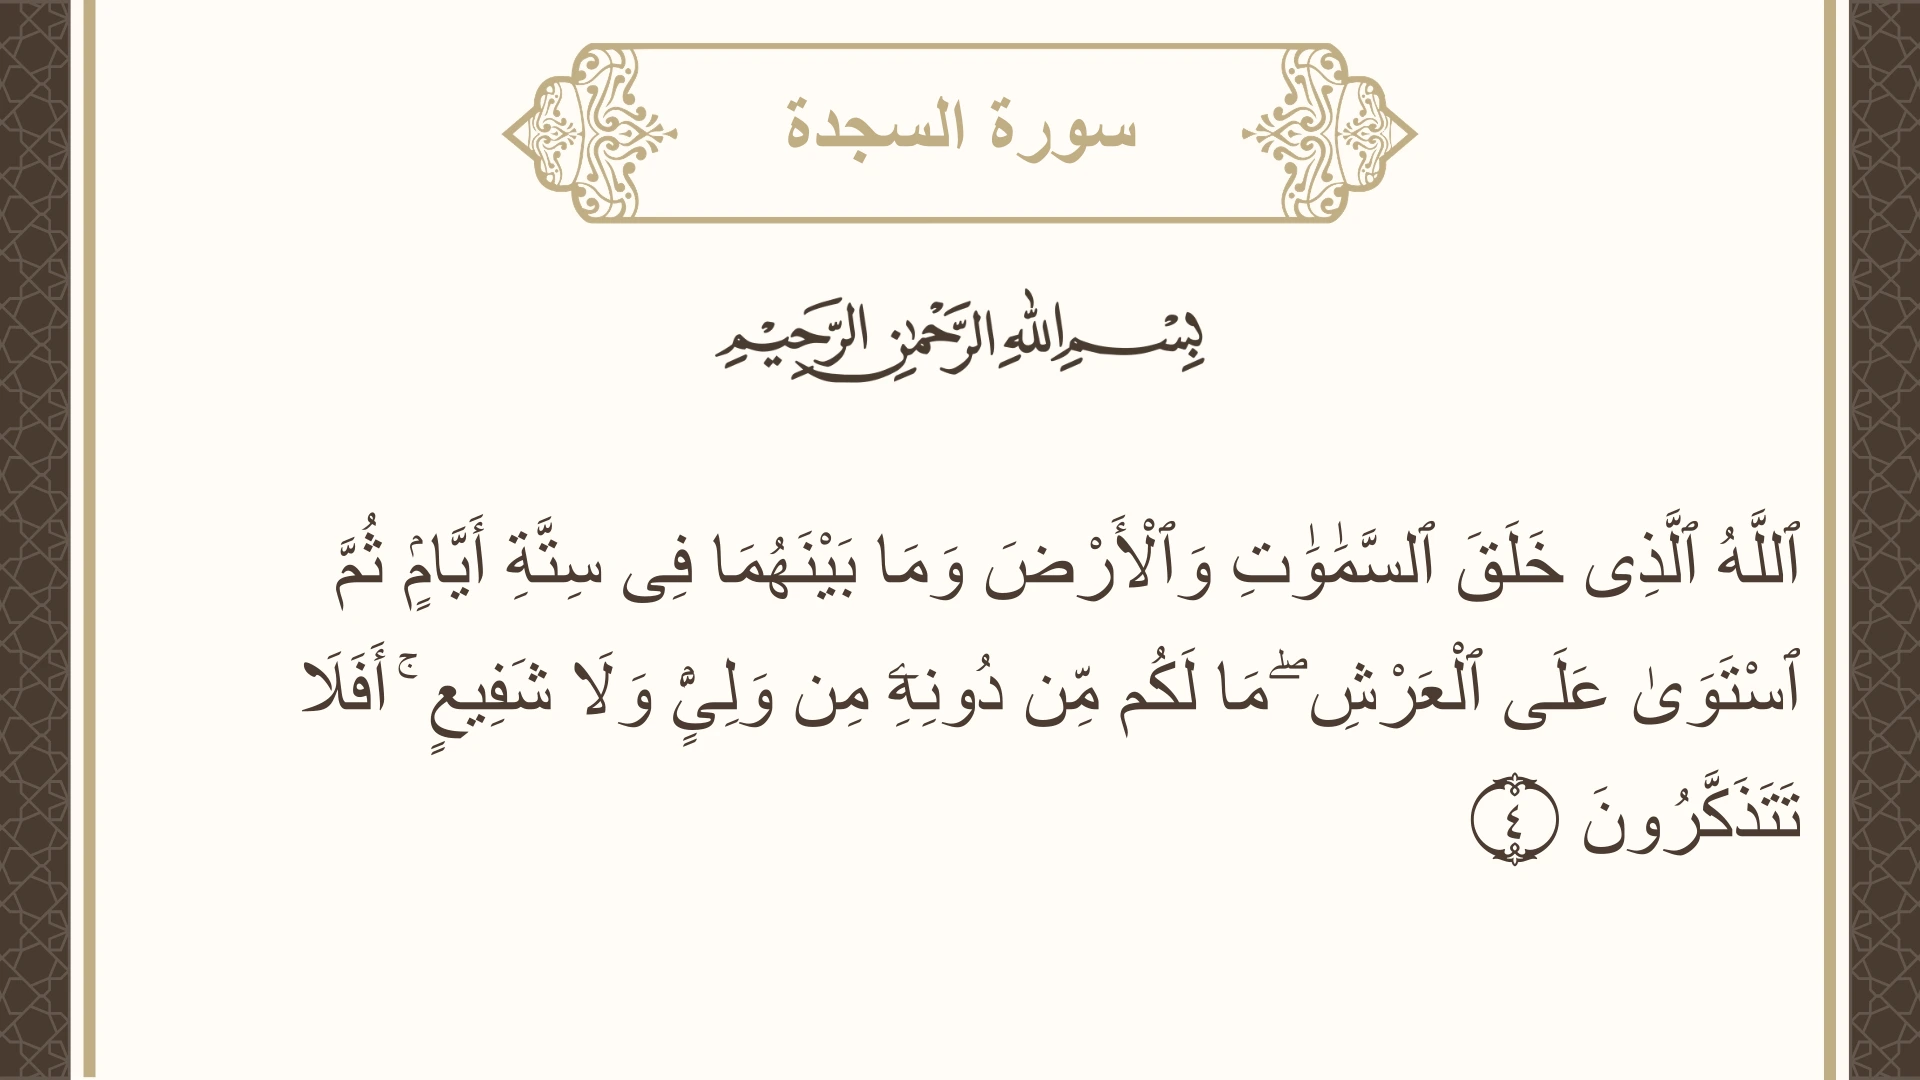 سورة السجدة
بِسْمِ اللهِ الرَّحْمٰنِ الرَّحِيْمِ
ٱللَّهُ ٱلَّذِى خَلَقَ ٱلسَّمَٰوَٰتِ وَٱلْأَرْضَ وَمَا بَيْنَهُمَا فِى سِتَّةِ أَيَّامٍۢ ثُمَّ
ٱسْتَوَىٰ عَلَى ٱلْعَرْشِ ۖ مَا لَكُم مِّن دُونِهِۦ مِن وَلِىٍّۢ وَلَا شَفِيعٍ ۚ أَفَلَا
تَتَذَكَّرُونَ ٤